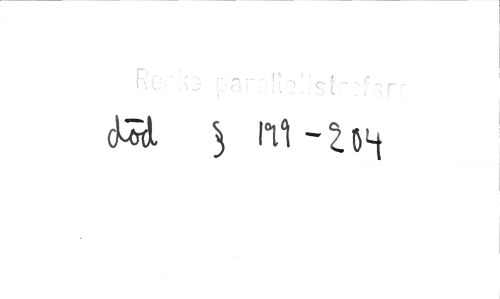 Recke parallellstrefsre
död § 199-204